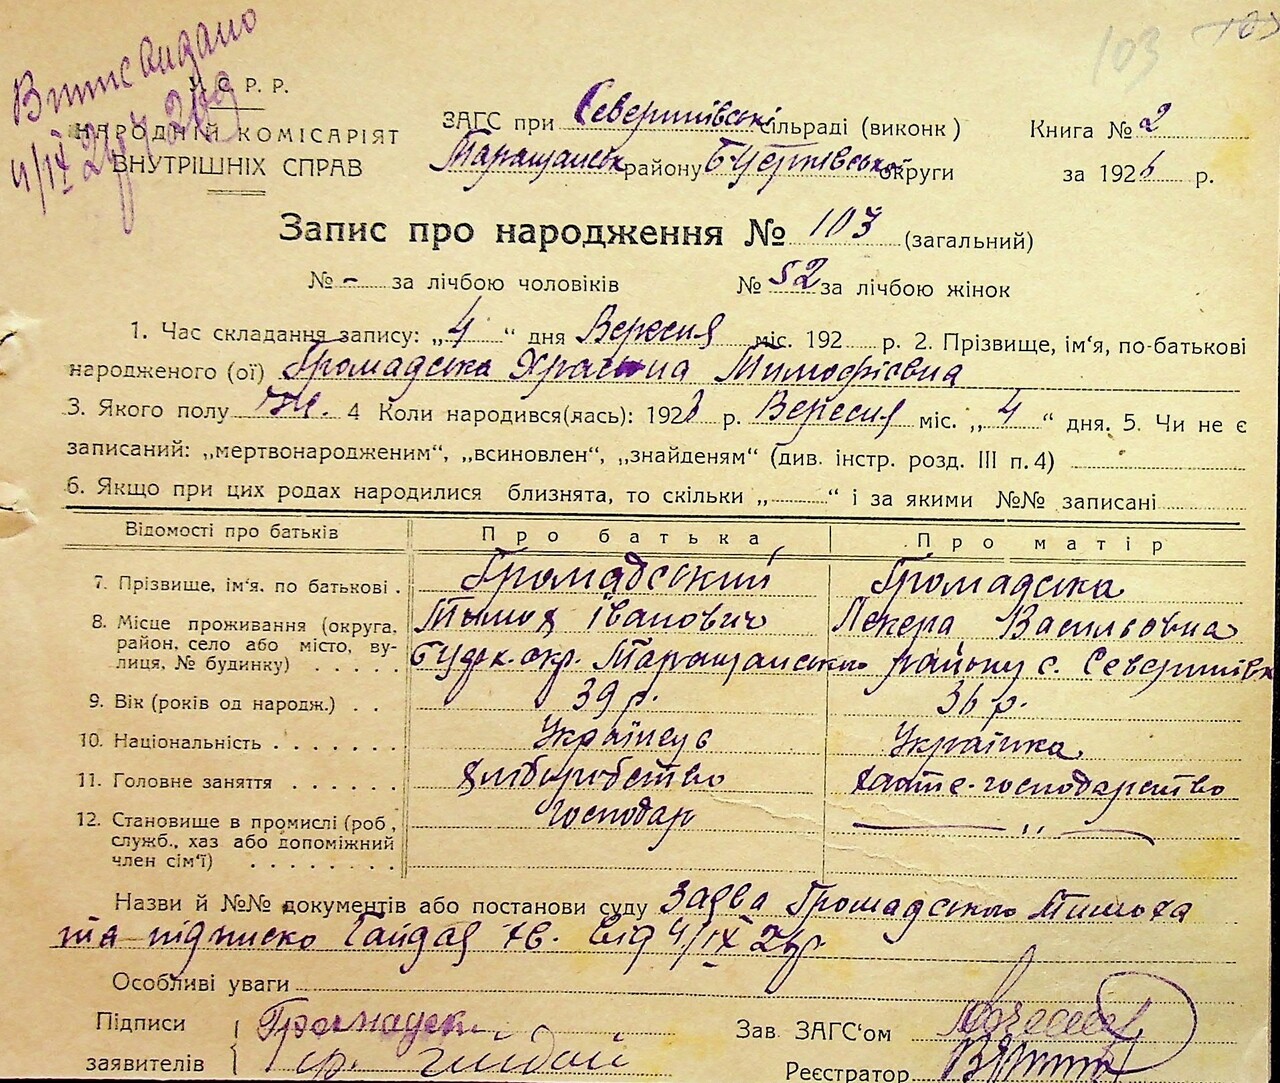 103
Витис видано
4/IX 26 р
У. С. Р. Р.
НАРОДНІЙ КОМІСАРІЯТ
ВНУТРІШНІХ СПРАВ
ЗАГС при Северинівські сільраді (виконк)
Таращанськ району округи
Книга № 2
за 1926 р.
Запис про народження № 103 (загальний)
№ - за лічбою чоловіків № 52 за лічбою жінок
1. Час складання запису: „4“ дня Вересня міс. 192 р. 2. Прізвище, ім'я, по-батькові
народженого (ої) Громадська Тимофієвна
3. Якого полу жі. 4 Коли народився(лась): 1926 р. Вересня міс. „4“ дня. 5. Чи не є
записаний: „мертвонародженим“, „всиновлен“, „знайденям“ (див. інстр. розд. III п. 4)
6. Якщо при цих родах народилися близнята, то скільки „ “ і за якими №№ записані
Відомості про батьків Про батька Про матір
7. Прізвище, ім'я, по батькові . Громадський Громадська
Іванович Васильовна
8. Місце проживання (округа,
район, село або місто, ву-
лиця, № будинку) . . . . окр. Таращанського району с. Северинівк
9. Вік (років од народж.) . . 39 р. 36 р.
10. Національність . . . . . . . Українець Українка
11. Головне заняття . . . . . . хліборобство хатнє-господарство
12. Становище в промислі (роб,
служб., хаз або допоміжний
член сім'ї) . . . . . . . . Господар — „ —
Назви й №№ документів або постанови суду Заява Громадського Тимоха
та підписко Гайдая від 4/IX 26 р.
Особливі уваги
Підписи
заявителів
Громадськ
гайдай
Зав. ЗАГС'ом
Реєстратор